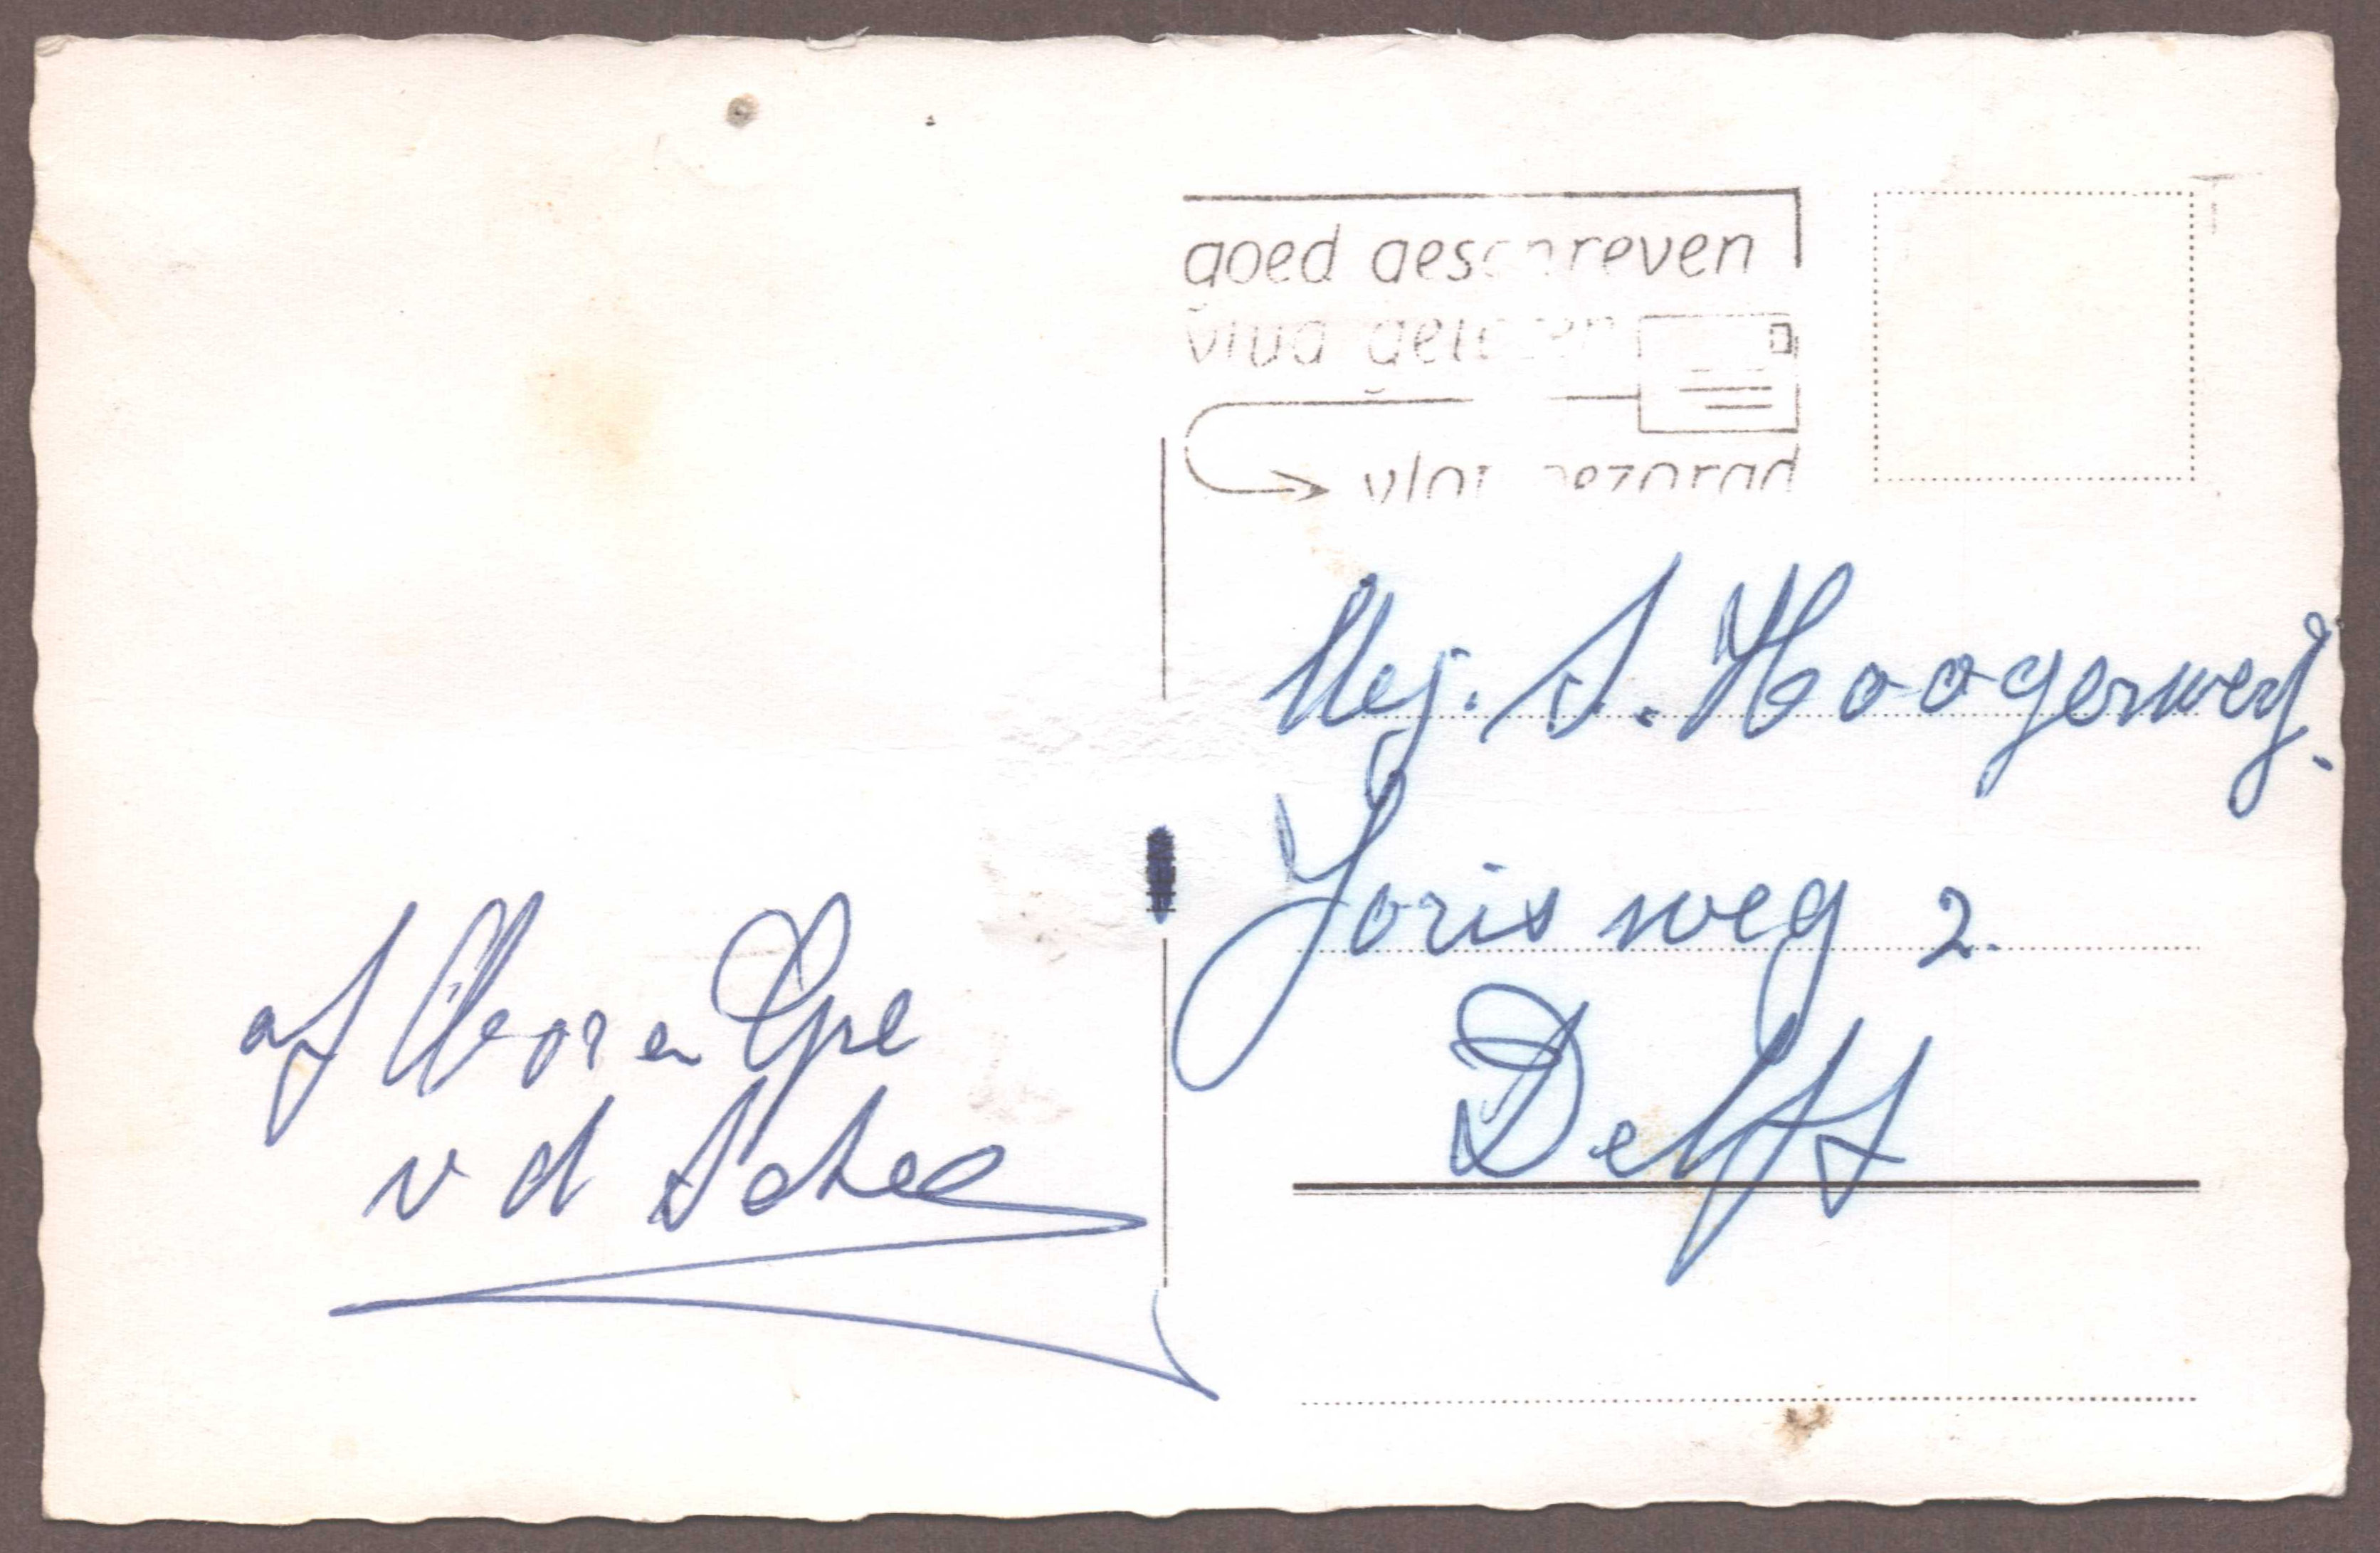 goed geschreven
vlug gelezen
vlot bezorgd
Mej. S. Hoogerweg.
Jorisweg 2.
Delft
af
v d